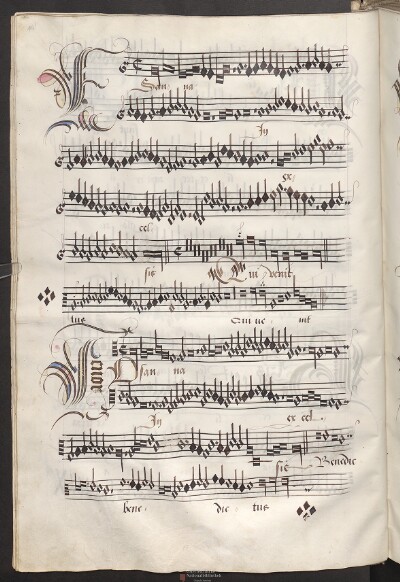 Osan na
Jn
ex
cel
sis Qui venit
tus Qui ue nit
Tenor Osan na
Jn ex cel
sis Benedic
bene die tus